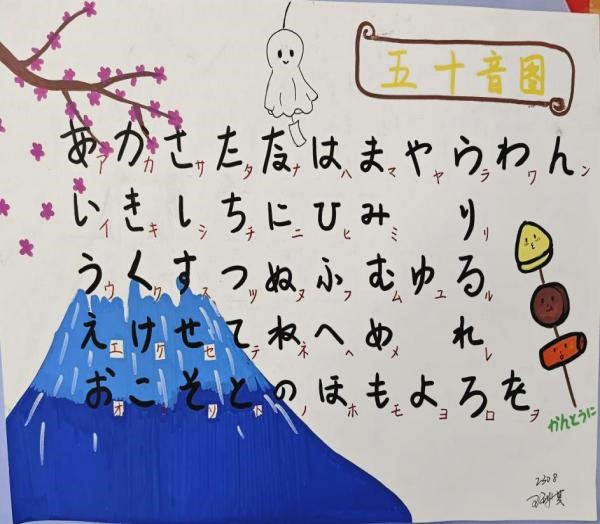 五十音图
あア かカ さサ たタ なナ はハ まマ やヤ らラ わワ んン
いイ きキ しシ ちチ にニ ひヒ みミ りリ
うウ くク すス つツ ぬヌ ふフ むム ゆユ るル
えエ けケ せセ てテ ねネ へヘ めメ れレ
おオ こコ そソ とト のノ ほホ もモ よヨ ろロ をヲ
かんとうに
2308